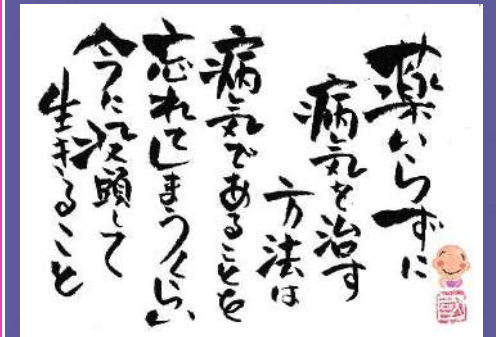 薬いらずに
病気を治す
方法は
病気であることを
忘れてしまうくらい
今に没頭して
生きること